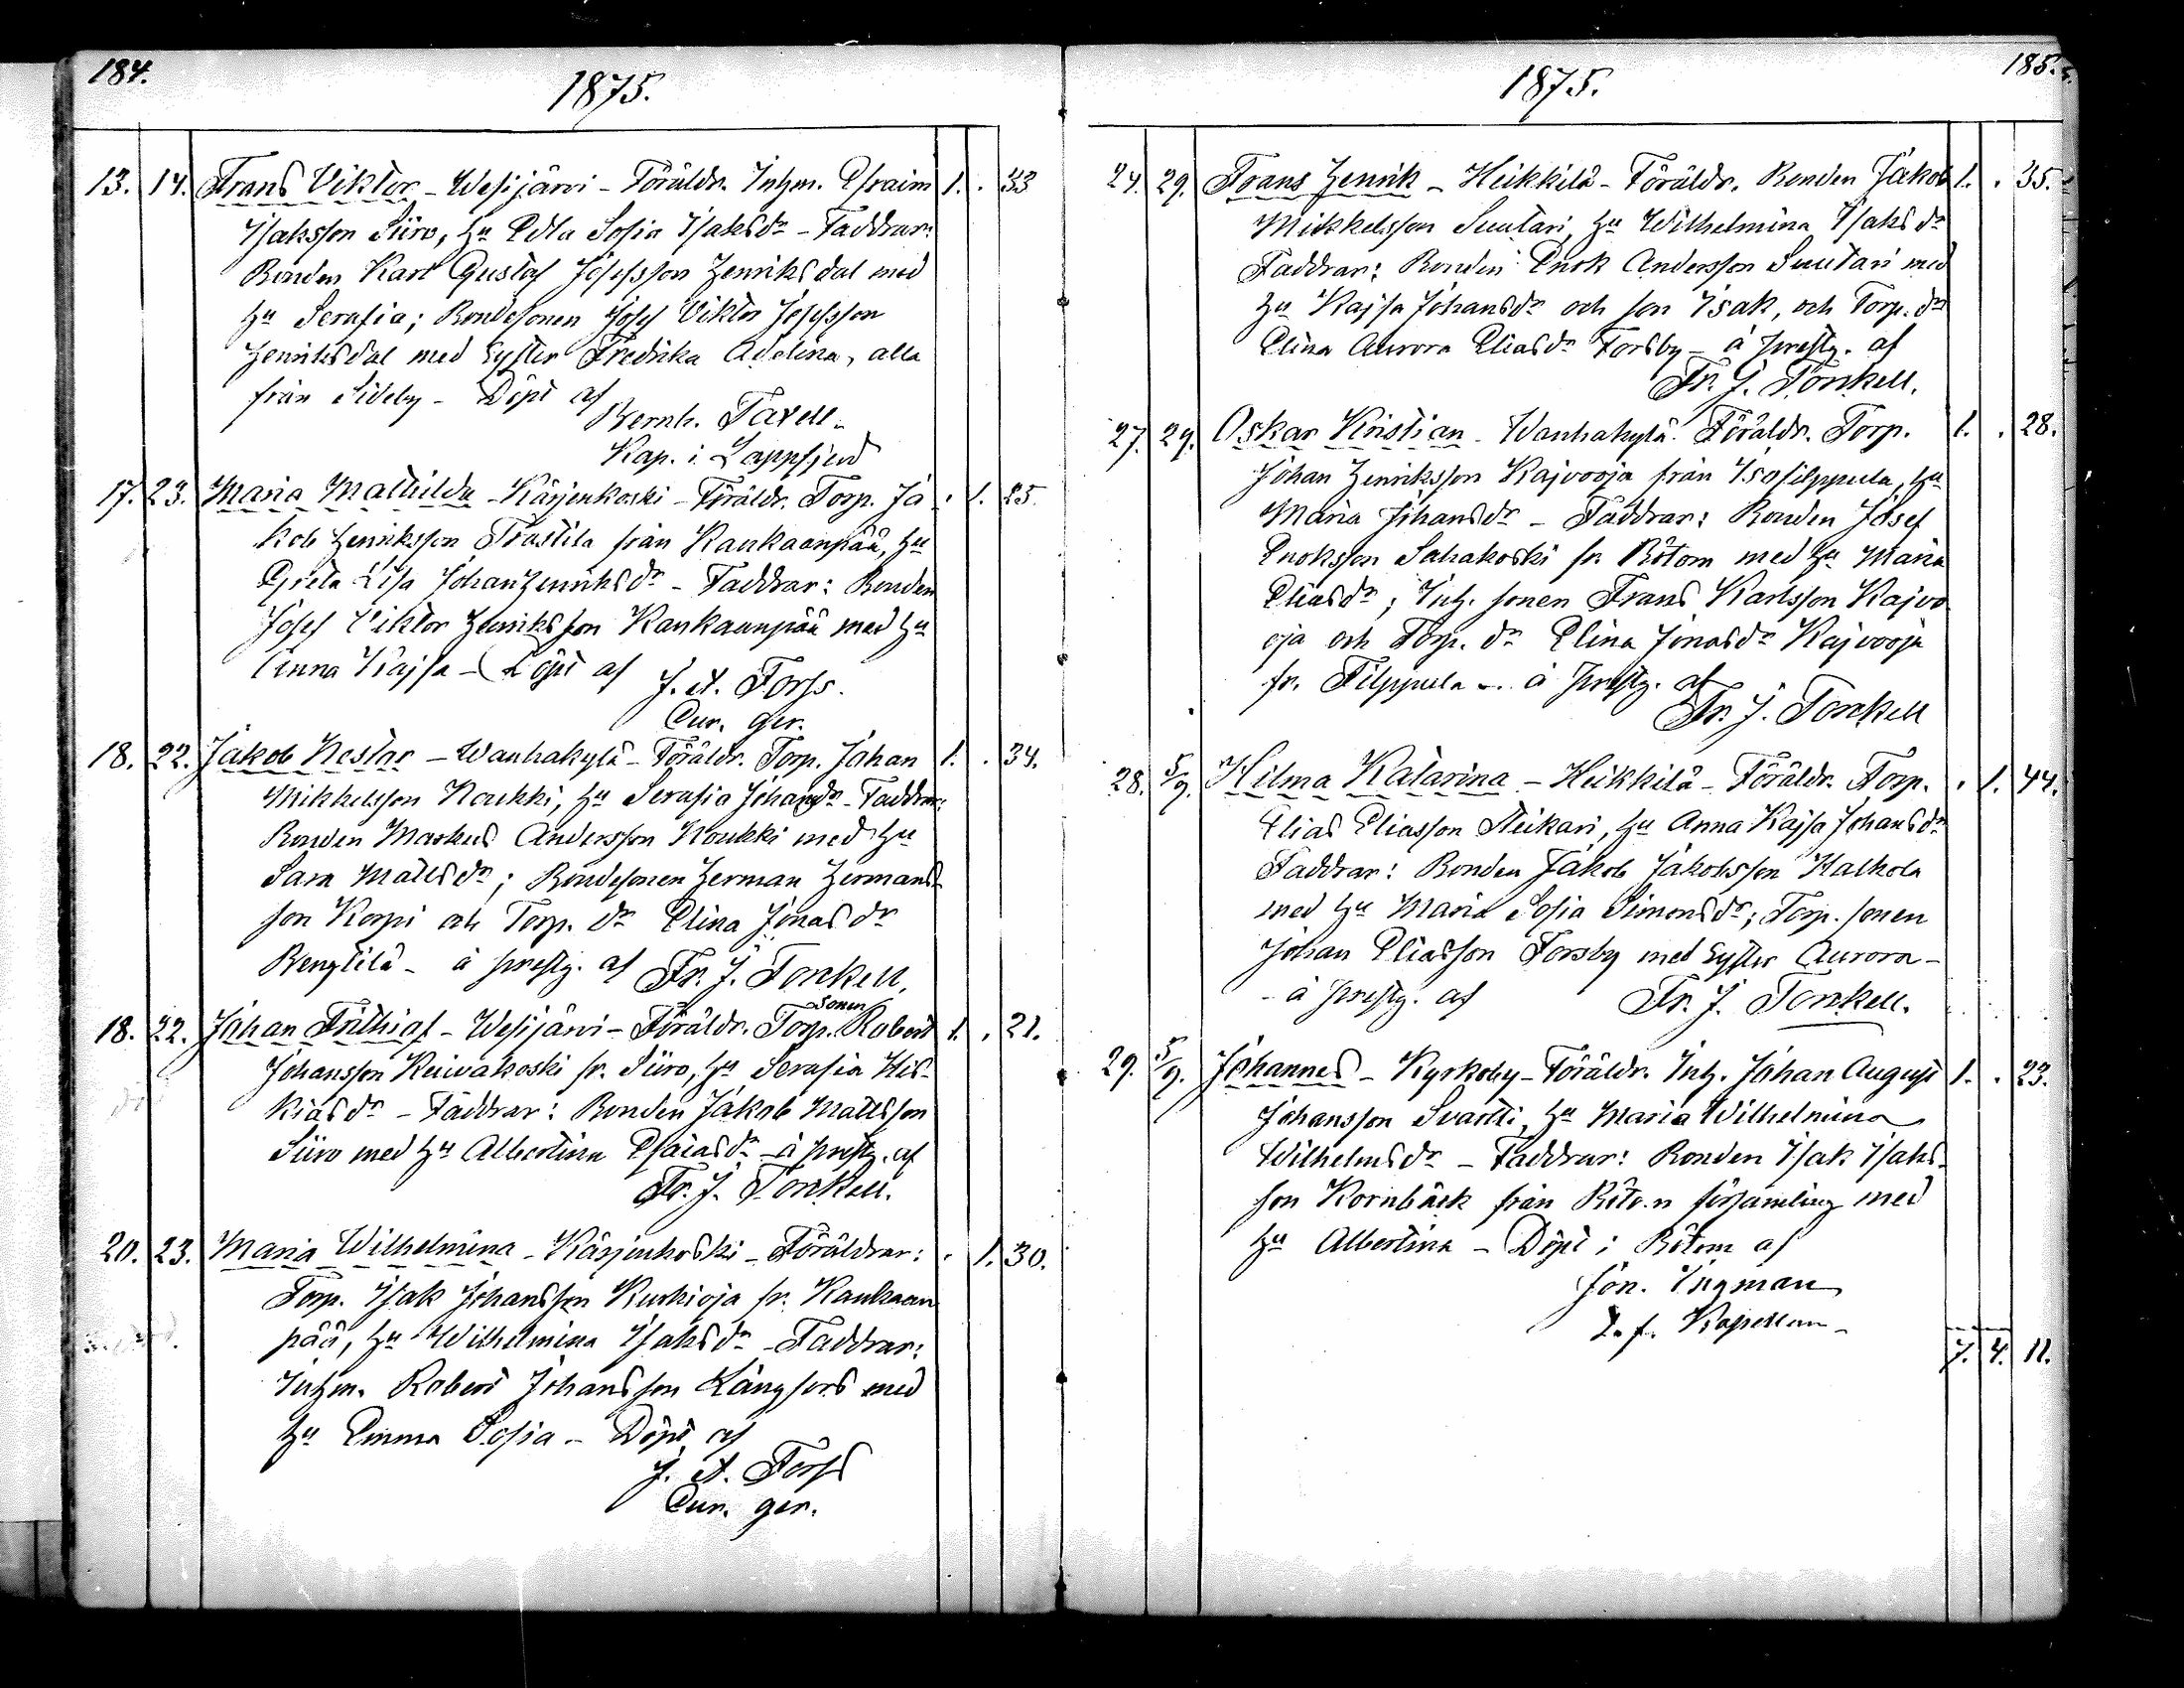 184.
1875.
13. 14. Frans Viktor - Wesijärvi - Föräldr. Inhm. Efraim 1. . 33
Isaksson Siiro, hu Edla Sofia Isaksdr - Faddrar:
Bonden Karl Gustaf Josefsson Henriksdal med
hu Serafia; Bondesonen Josef Viktor Josefsson
Henriksdal med syster Fredrika Adelina, alla
från Sideby - Döpt af
Bernh. Taxell.
Kap. i Lappfjerd
17. 23. Maria Mathilda - Kärjenkoski - Föräldr. Torp. Ja . 1. 25.
kob Henriksson Trastila från Kankaanpää, hu
Greta Lisa JohanHenriksdr - Faddrar: Bonden
Josef Viktor Henriksson Kankaanpää med hu
Anna Kajsa - Döpt af
J. A. Forss.
Cur. ger.
18. 22. Jakob Nestor - Wanhakylä - Föräldr. Torp. Johan 1. . 34.
Mikkelsson Koukki, hu Serafia Johansdr - Faddrar:
Bonden Markus Andersson Koukki med hu
Sara Mattsdr; Bondesonen Herman Hermans-
son Korpi och Torp. dr Elina Jonasdr
Bengtilä - å prestg. af Fr. J. Tonkell.
sonen
18. 22. Johan Frithiof - Wesijärvi - Föräldr. Torp. Robert 1. . 21.
Johansson Keiwakoski fr. Siiro, hu Serafia His-
kiasdr - Faddrar: Bonden Jakob Mattsson
Siiro med hu Albertina Esaiasdr - å prestg. af
Fr. J. Tonkell.
20. 23. Maria Wilhelmina - Kärjenkoski - Föräldrar: . 1. 30.
Torp. Isak Johansson Kurkioja fr. Kankaan
pää, hu Wilhelmina Isaksdr - Faddrar:
Inhm. Robert Johansson Långfors med
hu Emma Sofia - Döpt af
J. A. Forss
Cur. ger.
185.
1875.
24. 29. Frans Henrik - Heikkilä - Föräldr. Bonden Jakob 1. . 35.
Mikkelsson Suutari, hu Wilhelmina Isaksdr
Faddrar: Bonden Enok Andersson Suutari med
hu Kajsa Johansdr och son Isak, och Torp. dr
Elina Aurora Eliasdr Forsby - å prestg. af
Fr. J. Tonkell.
27. 29. Oskar Kristian - Wanhakylä. Föräldr. Torp. 1. . 28.
Johan Henriksson Kajvooja från Isofilppula, hu
Maria Johansdr - Faddrar: Bonden Josef
Enoksson Sahakoski fr. Bötom med hu Maria
Eliasdr; Inh. sonen Frans Karlsson Kajvo
oja och Torp. dr Elina Jonasdr Kajvooja
fr. Filppula - å prestg. af
Fr. J. Tonkell
28. 5/9. Hilma Katarina - Heikkilä - Föräldr. Torp. . 1. 44.
Elias Eliasson Steikari, hu Anna Kajsa Johansdr
Faddrar: Bonden Jakob Jakobsson Kalkola
med hu Maria Sofia Simonsdr; Torp. sonen
Johan Eliasson Forsby med syster Aurora -
- å prestg. af Fr. J. Tonkell.
29. 5/9. Johannes - Kyrkoby - Föräldr. Inh. Johan August 1. . 23.
Johansson Svartti, hu Maria Wilhelmina
Wilhelmsdr - Faddrar: Bonden Isak Isaks-
son Kornbäck från Bötom församling med
hu Albertina - Döpt i Bötom af
Jon. Ingman
T. f. Kapellan -
7. 4. 11.